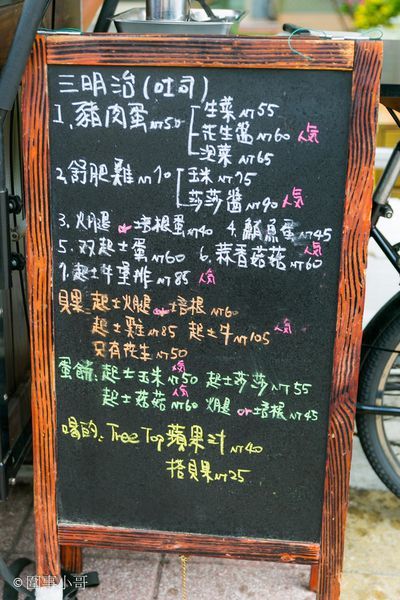 三明治(吐司)
1.豬肉蛋NT50 生菜NT55
花生醬NT60 人気
泡菜NT65
2.舒肥雞NT70 玉米NT75
莎莎醬NT90 人気
3.火腿or培根蛋NT40 4.鮪魚蛋NT45
5.双起士蛋NT60 6.蒜香菇菇NT60 人気
7.起士牛里肌NT85 人気
貝果:起士火腿or培根NT60
起士雞NT85 起士牛NT105 人気
只有花生NT50
蛋餅:起士玉米NT50 起士莎莎NT55 人気
起士菇菇NT60 火腿or培根NT45 人気
喝的:Tree Top蘋果汁NT40
搭貝果NT25